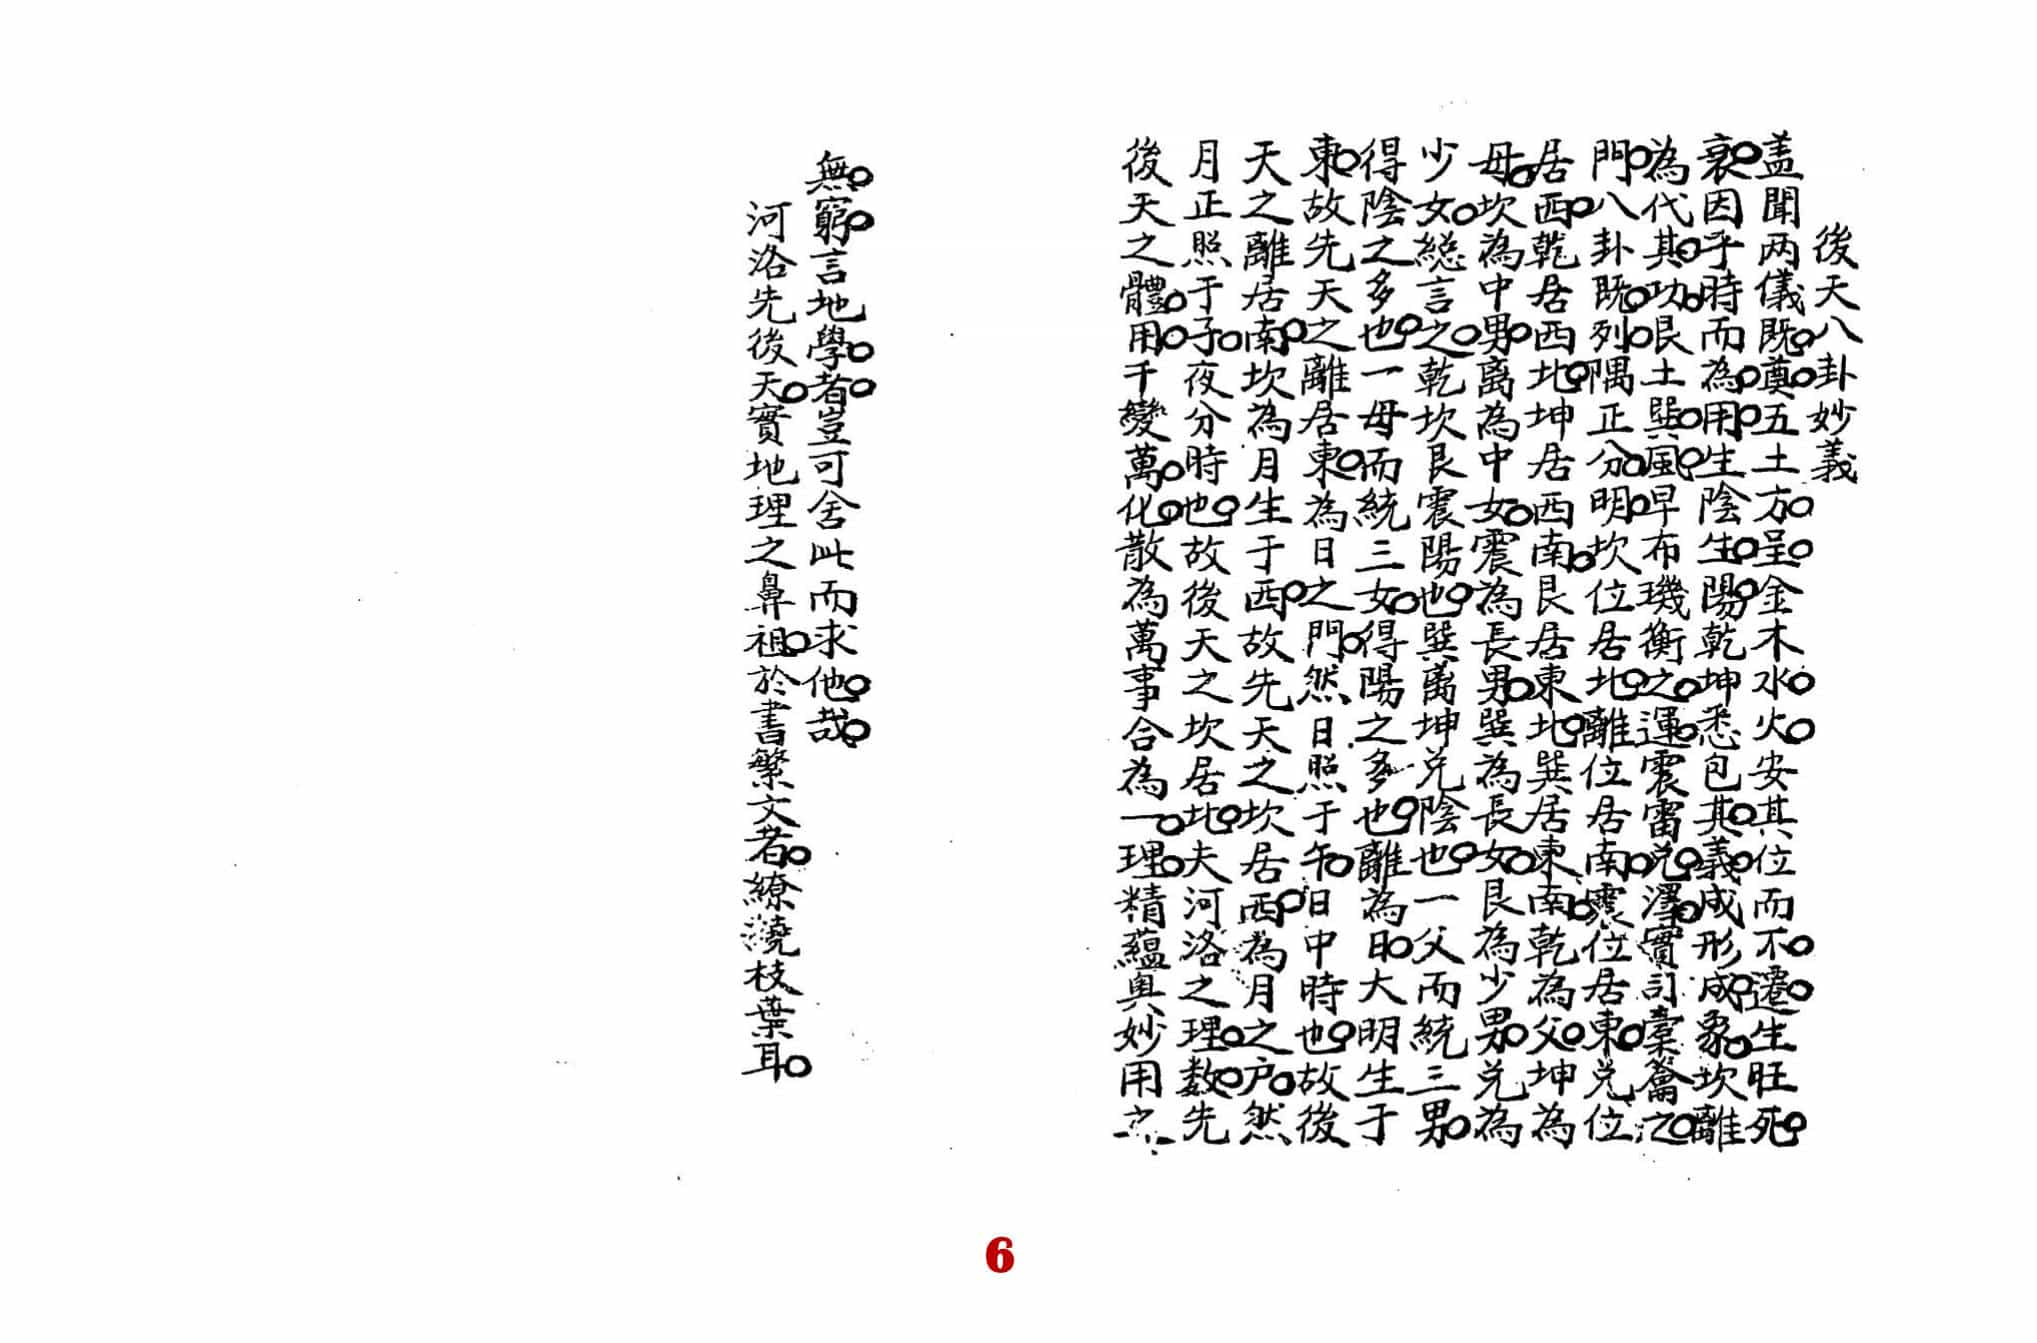 後天八卦妙義
盖聞两儀既奠五土方呈金木水火安其位而不遷生旺死
衰因乎時而為用生陰生陽乾坤悉包其義成形成象坎離
為代其功艮土巽風早布璣衡之運震雷兌澤實司槖籥之
門八卦既列隅正分明坎位居北離位居南震位居東兌位
居西乾居西北坤居西南艮居東北巽居東南乾為父坤為
母坎為中男离為中女震為長男巽為長女艮為少男兌為
少女総言之乾坎艮震陽也巽离坤兌陰也一父而統三男
得陰之多也一母而統三女得陽之多也離為日大明生于
東故先天之離居東為日之門然日照于午日中時也故後
天之離居南坎為月生于西故先天之坎居西為月之户然
月正照于子夜分時也故後天之坎居北夫河洛之理数先
後天之體用千變萬化散為萬事合為一理精蘊奧妙用之
無窮言地學者豈可舍此而求他哉
河洛先後天實地理之鼻祖於書繁文者繚澆枝葉耳
6